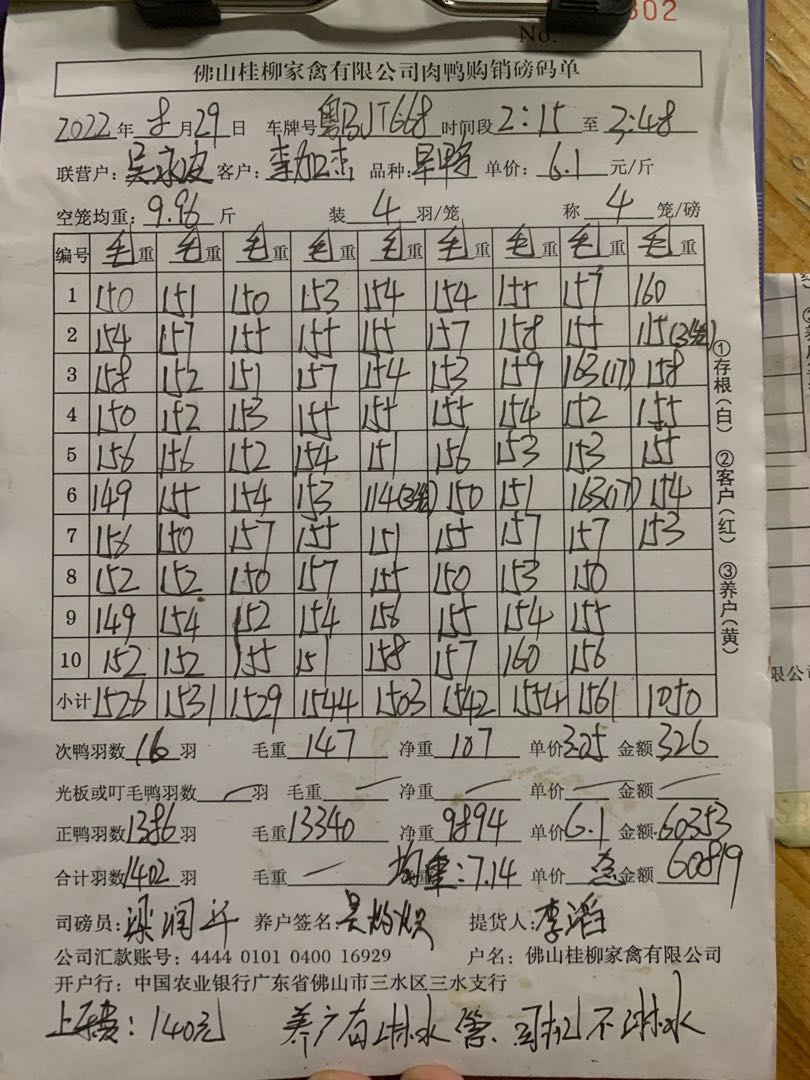 No. 302
佛山桂柳家禽有限公司肉鸭购销磅码单
2022年8月29日 车牌号 粤BJT668 时间段 2:15 至 3:48
联营户: 客户: 李加杰 品种: 旱鸭 单价: 6.1 元/斤
空笼均重: 9.96 斤 装 4 羽/笼 称 4 笼/磅
编号 毛重 毛重 毛重 毛重 毛重 毛重 毛重 毛重 毛重
1 150 151 150 153 154 154 155 157 160
2 154 157 155 155 155 157 158 155 115(3笼)
3 158 152 151 157 154 153 159 163(17) 158
4 150 152 153 155 155 155 154 152 155
5 156 156 152 154 151 156 153 153 155
6 149 155 154 153 114(3笼) 150 151 163(17) 154
7 156 150 157 155 151 155 157 157 153
8 152 152 150 157 155 150 153 150
9 149 154 152 154 156 155 154 155
10 152 152 155 151 158 157 160 156
小计 1526 1531 1529 1544 1503 1542 1554 1561 1050
①存根(白) ②客户(红) ③养户(黄)
次鸭羽数 16 羽 毛重 147 净重 107 单价 3.05 金额 326
光板或叮毛鸭羽数 羽 毛重 净重 单价 金额
正鸭羽数 1386 羽 毛重 13340 净重 9894 单价 6.1 金额 60353
合计羽数 1402 羽 毛重 均重: 7.14 单价 金额 60819
司磅员: 梁润 养户签名: 提货人: 李滔
公司汇款账号: 4444 0101 0400 16929 户名: 佛山桂柳家禽有限公司
开户行: 中国农业银行广东省佛山市三水区三水支行
上车费: 140元 养户有淋水管、司机不淋水
限公司